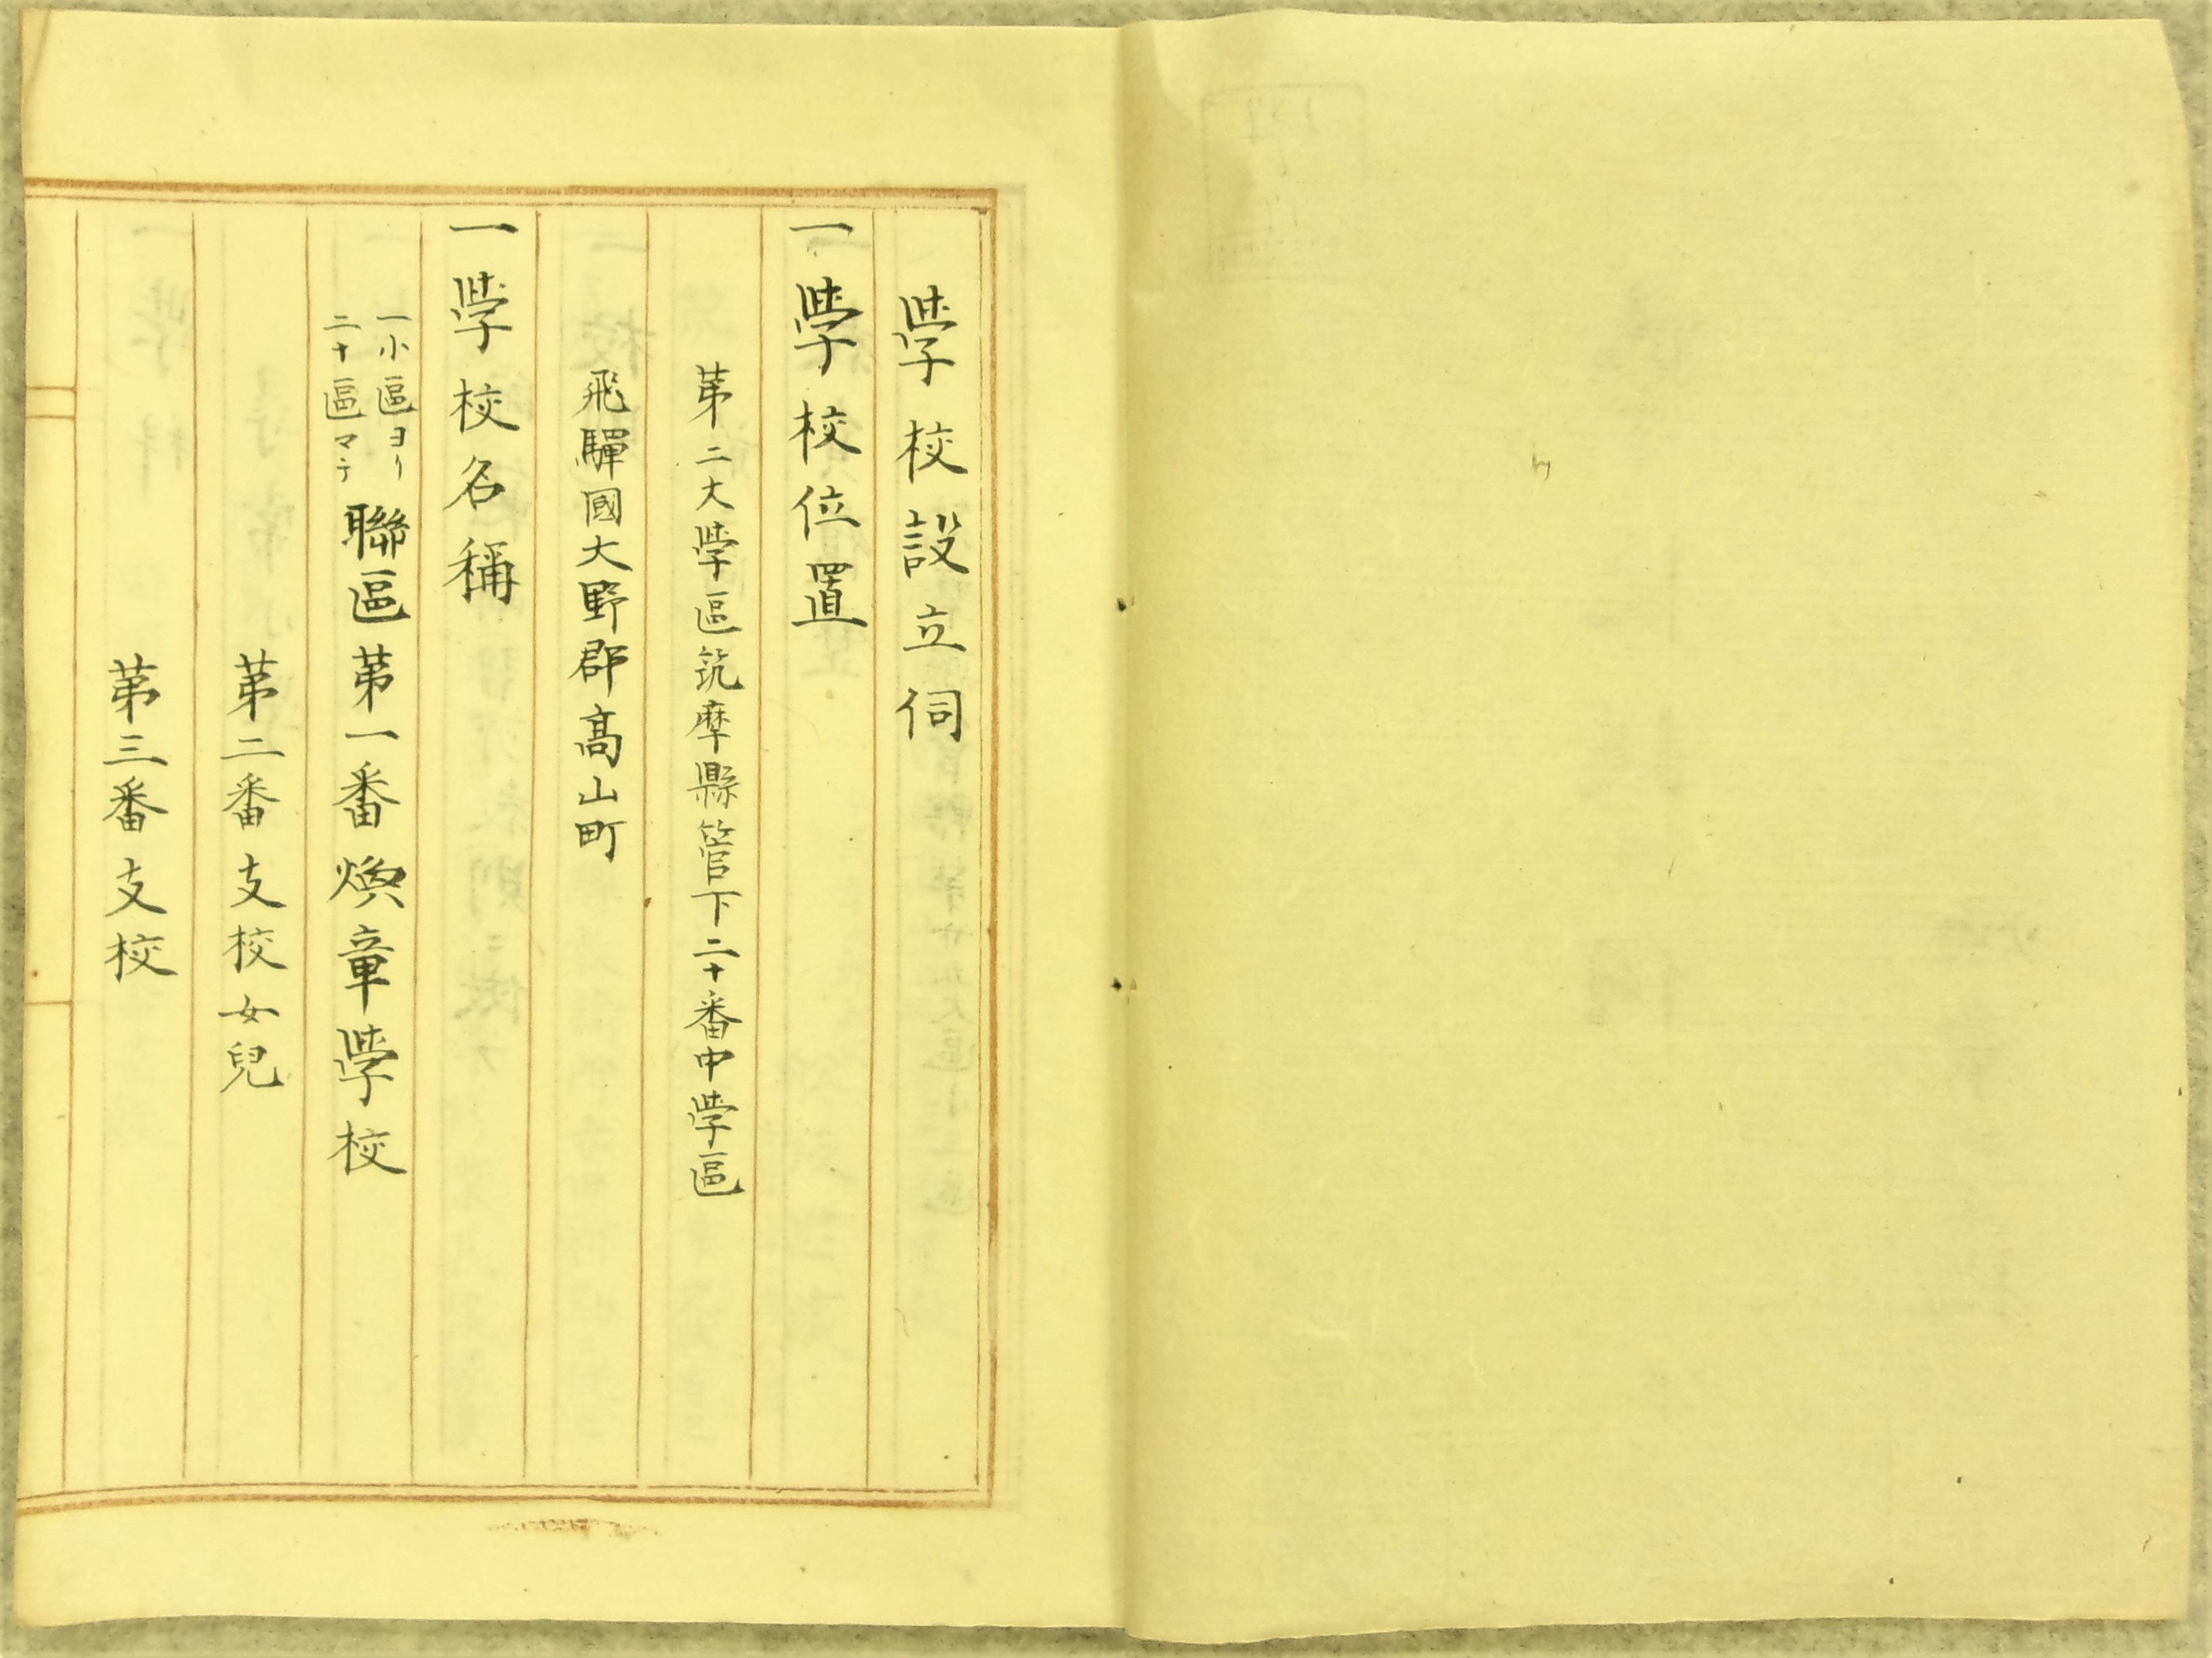 學校設立伺
一學校位置
第二大學區筑摩縣管下二十番中學區
飛騨國大野郡高山町
一學校名稱
一小區ヨリ
二十區マテ
聯區第一番煥章學校
第二番支校女兒
第三番支校